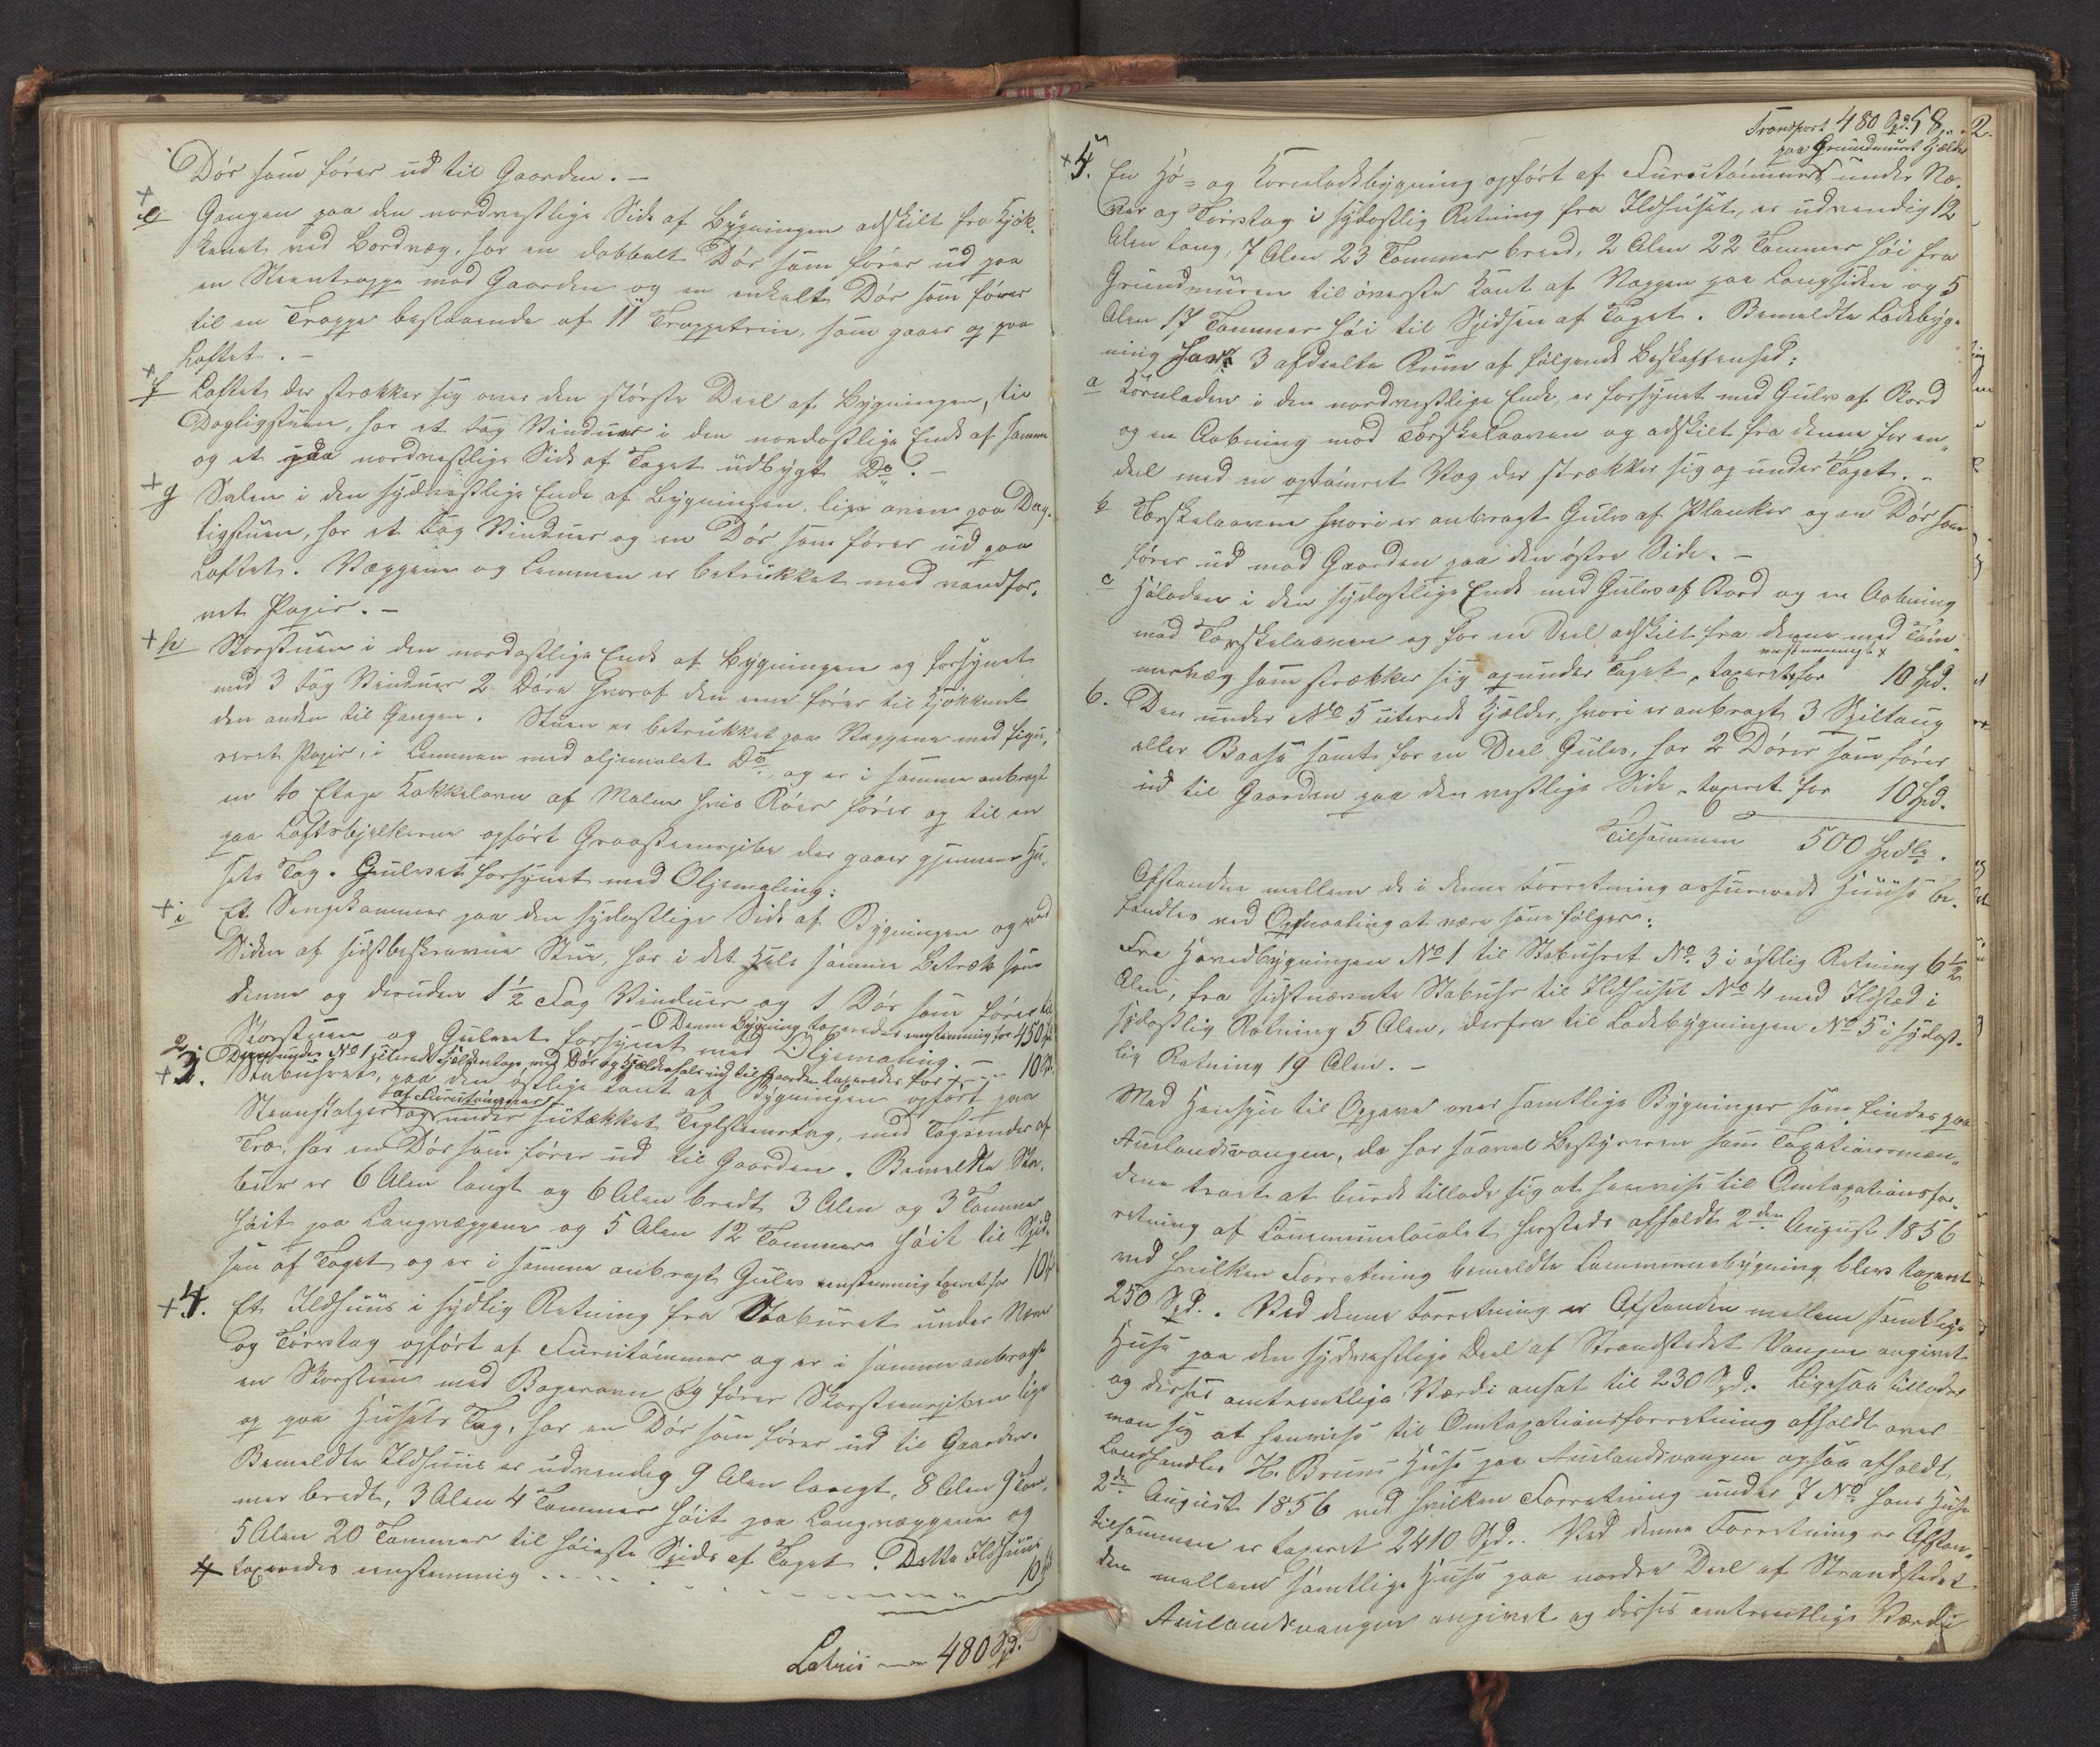 Dör som förer ud til Gaarden. –
e Gangen paa den nordvestlige Side af Bygningen adskilt fra Kjök-
kenet ved Bordvæg, har en dobbelt Dör som förer ud paa
en Steentrappe mod Gaarden og en enkelt Dör som förer
til en Trappe bestaaende af 11 Trappetrin, som gaaer op paa
Loftet. –
f Loftet der strækker sig over den störste Deel af Bygningen, til
Dagligstuen, har et Fag Vinduer i den nordostlige Ende af samme
og et paa nordvestlige Side af Taget udbygt Do. –
g Salen i den sydvestlige Ende af Bygningen, lige oven paa Dag-
ligstuen, har et Fag Vinduer og en Dör som förer ud paa
Loftet. Væggene og Lemmen er betrukket med vandfar-
vet Papir. –
h Storstuen i den nordostlige Ende af Bygningen og forsynet
med 3 Fag Vinduer 2 Döre hvoraf den ene förer til Kjökkenet
den anden til Gangen. Stuen er betrukket paa Væggene med figu-
reret Papir, i Lemmen med oljemalet Do, og er i samme anbragt
en to Etage Kakkelovn af Malm hvis Röer förer op til en
paa Loftsbjelkerne opfört Graasteenspibe der gaaer gjennem Hu-
sets Tag. Gulvet forsynet med Oljemaling.
i Et Sengekammer paa den sydostlige Side af Bygningen og ved
Siden af sidstbeskrevne Stue, har i det Hele samme Betræk som
denne og desuden 1 1/2 Fag Vinduer og 1 Dör som förer til
Storstuen og Gulvet forsynet med Oljemaling. –
Denne Bygning taxeredes eenstemmig for 450
2. Den under No 1 siterede Kjelderetage, med Dör og Kjælderhals ud til Gaarden taxeredes for 10
3. Stabuhret, paa den östlige Kant af Bygningen opfört paa
Steenstolper af Furutömmer og under sutækket Teglsteenstag, med Tagrender af
Træ, har en Dör som förer ud til Gaarden. Bemeldte Sta-
bur er 6 Alen langt og 6 Alen bredt 3 Alen og 3 Tommer
höit paa Langvæggene og 5 Alen 12 Tommer höit til Spid-
sen af Taget og er i samme anbragt Gulv eenstemmig taxeret for 10
4. Et Ildhuus i sydlig Retning fra Staburet under Næver
og Törvtag opfört af Furutömmer og er i samme anbragt
en Skorsteen med Bagerovn og förer Skorsteenspiben lige
op paa Husets Tag, har en Dör som förer ud til Gaarden.
Bemeldte Ildhuus er udvendig 9 Alen langt, 8 Alen 9 Tom-
mer bredt, 3 Alen 4 Tommer höit paa Langvæggene og
5 Alen 20 Tommer til höieste Spids af Taget. Dette Ildhuus
taxeredes eenstemmig 10
Latus 480 Spd.
Transport 480 Spd. 58
paa Grundmuret Kjelder
5. En Hö- og Kornladebygning opfört af Furutömmer under Næ-
ver og Törvtag i sydostlig Retning fra Ildhuset, er udvendig 12
Alen lang, 7 Alen 23 Tommer breed, 2 Alen 22 Tommer höi fra
Grundmuren til överste Kant af Væggen paa Langsiden og 5
Alen 17 Tommer höi til Spidsen af Taget. Bemeldte Ladebyg-
ning har 3 afdeelte Rum af fölgende Beskaffenhed:
a Kornladen i den nordvestlige Ende, er forsynet med Gulv af Bord
og en Aabning mod Tærskelaaven og adskilt fra denne for en
deel med en optömret Væg der strækker sig op under Taget. –
b Tærskelaaven hvori er anbragt Gulv af Planker og en Dör som
förer ud mod Gaarden paa den östre Side. –
c Höladen i den sydostlige Ende med Gulv af Bord og en Aabning
mod Tærskelaaven og for en Deel adskilt fra denne med Töm-
mervæg som strækker sig op under Taget, taxeret eenstemmigt for 10 Spd.
6. Den under No 5 siterede Kjelder, hvori er anbragt 3 Spiltaug
eller Baase samt for en Deel Gulv, har 2 Dörer som förer
ud til Gaarden paa den vestlige Side, taxeret for 10 Spd.
Tilsammen 500 Spdlr.
Afstanden mellem de i denne Forretning assurerede Huuse be-
fandtes ved Opmaaling at være som fölger:
Fra Hovedbygningen No 1 til Stabuhret No 3 i östlig Retning 6 1/2
Alen, fra sidstnævnte Stabuhr til Ildhuset No 4 med Ildsted i
sydostlig Retning 5 Alen, derfra til Ladebygningen No 5 i sydost-
lig Retning 19 Alen. –
Med Hensyn til Opgave over samtlige Bygninger som findes paa
Aurlandsvangen, da har saavel Bestyreren som Taxationsmæn-
dene troet at burde tillade sig at henvise til Omtaxationsfor-
retning af Communelocalet hersteds afholdt 2den August 1856
ved hvilken Forretning bemeldte Communebygning blev taxeret
250 Spd. Ved denne Forretning er Afstanden mellem samtlige
Huse paa den sydvestlige Deel af Strandstedet Vangen angivet
og disses omtrentlige Værdi ansat til 230 Spd. Ligesaa tillader
man sig at henvise til Omtaxationsforretning afholdt over
Landhandler H. Bruns Huse paa Aurlandsvangen ogsaa afholdt
2de August 1856 ved hvilken Forretning under 7 No hans Huse
tilsammen er taxeret 2410 Spd. Ved denne Forretning er Afstan-
den mellem samtlige Huse paa nordre Deel af Strandstedet
Aurlandsvangen angivet og disses omtrentlige Værdi